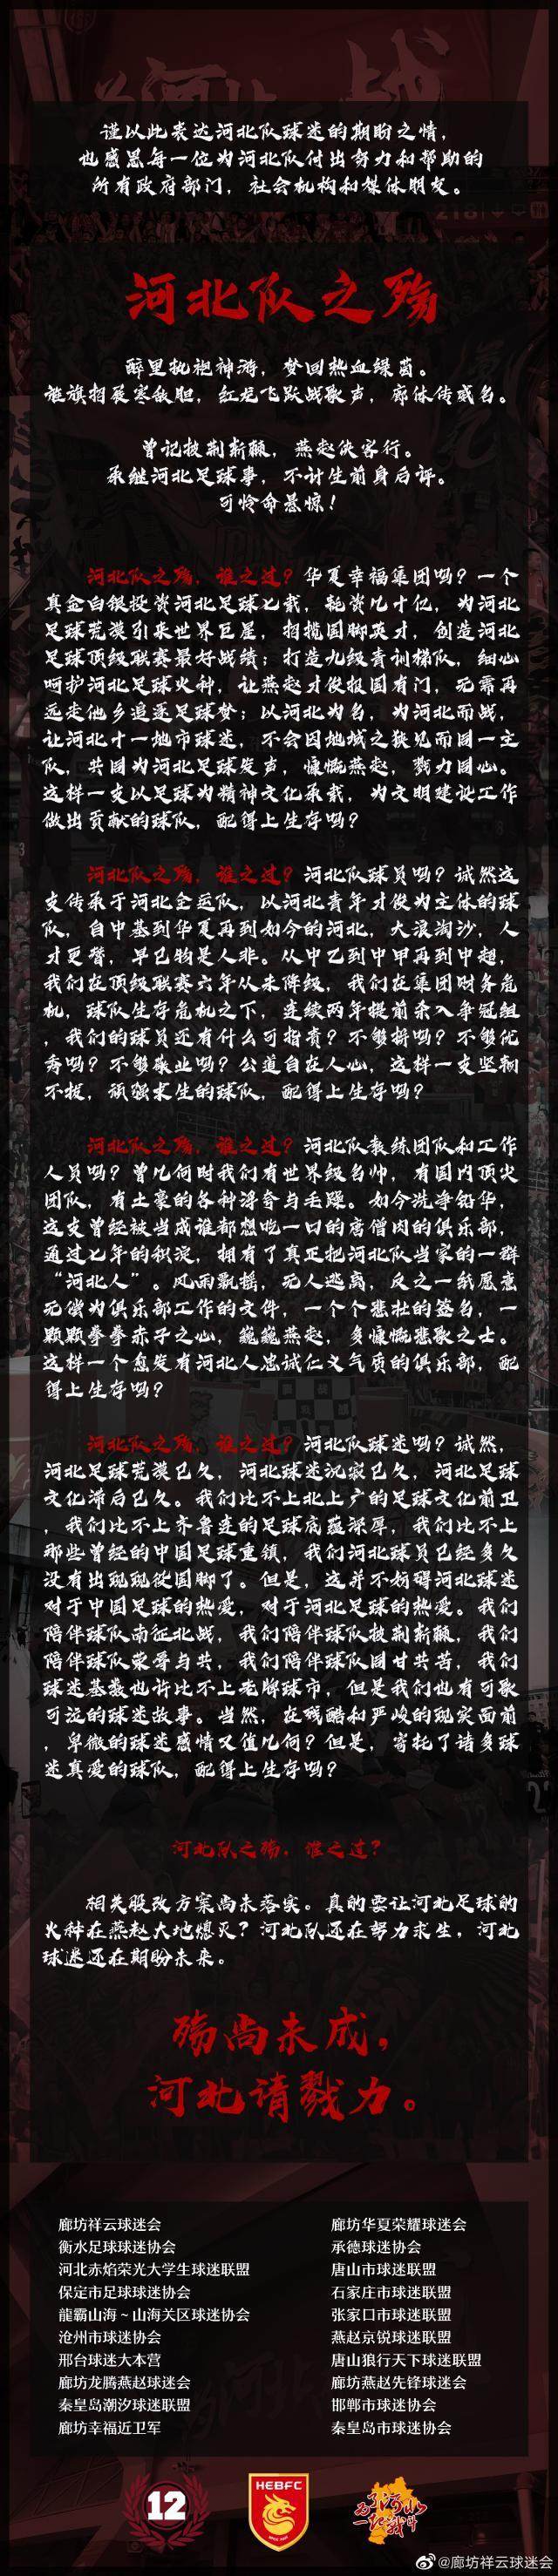 谨以此表达河北队球迷的期盼之情，
也感恩每一位为河北队付出努力和帮助的
所有政府部门，社会机构和媒体朋友。
河北队之殇
醉里执袍神游，梦回热血绿茵。
旌旗招展寒敌胆，红龙飞跃战歌声，廊体传威名。
曾记披荆斩棘，燕赵侠客行。
承继河北足球事，不计生前身后评。
可怜命悬惊！
河北队之殇，谁之过？华夏幸福集团吗？一个
真金白银投资河北足球七载，耗资几十亿，为河北
足球荒漠引来世界巨星，招揽国脚英才，创造河北
足球顶级联赛最好战绩；打造九级青训梯队，细心
呵护河北足球火种，让燕赵才俊报国有门，无需再
远走他乡追逐足球梦；以河北为名，为河北而战，
让河北十一地市球迷，不会因地域之狭见而同一主
队，共同为河北足球发声，慷慨燕赵，戮力同心。
这样一支以足球为精神文化承载，为文明建设工作
做出贡献的球队，配得上生存吗？
河北队之殇，谁之过？河北队球员吗？诚然这
支传承于河北全运队，以河北青年才俊为主体的球
队，自中基到华夏再到如今的河北，大浪淘沙，人
才更替，早已物是人非。从中乙到中甲再到中超，
我们在顶级联赛六年从未降级，我们在集团财务危
机，球队生存危机之下，连续两年提前杀入争冠组
，我们的球员还有什么可指责？不够拼吗？不够优
秀吗？不够敬业吗？公道自在人心，这样一支坚韧
不拔，顽强求生的球队，配得上生存吗？
河北队之殇，谁之过？河北队教练团队和工作
人员吗？曾几何时我们有世界级名帅，有国内顶尖
团队，有土豪的各种浮夸与毛躁。如今洗净铅华，
这支曾经被当成谁都想吃一口的唐僧肉的俱乐部，
通过七年的积淀，拥有了真正把河北队当家的一群
“河北人”。风雨飘摇，无人逃离，反之一纸愿意
无偿为俱乐部工作的文件，一个个悲壮的签名，一
颗颗拳拳赤子之心，巍巍燕赵，多慷慨悲歌之士。
这样一个愈发有河北人忠诚仁义气质的俱乐部，配
得上生存吗？
河北队之殇，谁之过？河北队球迷吗？诚然，
河北足球荒漠已久，河北球迷沉寂已久，河北足球
文化滞后已久。我们比不上北上广的足球文化前卫
，我们比不上齐鲁连的足球底蕴深厚，我们比不上
那些曾经的中国足球重镇，我们河北球员已经多久
没有出现现役国脚了。但是，这并不妨碍河北球迷
对于中国足球的热爱，对于河北足球的热爱。我们
陪伴球队南征北战，我们陪伴球队披荆斩棘，我们
陪伴球队荣辱与共，我们陪伴球队同甘共苦，我们
球迷基数也许比不上老牌球市，但是我们也有可歌
可泣的球迷故事。当然，在残酷和严峻的现实面前
，卑微的球迷感情又值几何？但是，寄托了诸多球
迷真爱的球队，配得上生存吗？
河北队之殇，谁之过？
相关股改方案尚未落实。真的要让河北足球的
火种在燕赵大地熄灭？河北队还在努力求生，河北
球迷还在期盼未来。
殇尚未成，
河北请戮力。
廊坊祥云球迷会
廊坊华夏荣耀球迷会
衡水足球球迷协会
承德球迷协会
河北赤焰荣光大学生球迷联盟
唐山市球迷联盟
保定市足球球迷协会
石家庄市球迷联盟
龍霸山海～山海关区球迷协会
张家口市球迷联盟
沧州市球迷协会
燕赵京锐球迷联盟
邢台球迷大本营
唐山狼行天下球迷联盟
廊坊龙腾燕赵球迷会
廊坊燕赵先锋球迷会
秦皇岛潮汐球迷联盟
邯郸市球迷协会
廊坊幸福近卫军
秦皇岛市球迷协会
12
HEBFC
@廊坊祥云球迷会